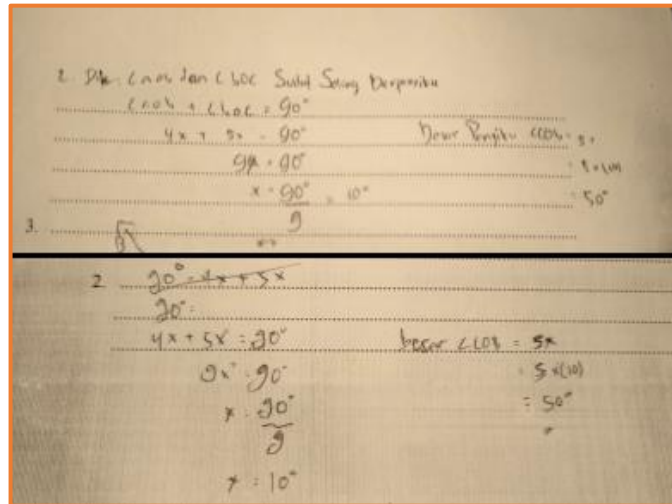 2. Dik: ∠AOB dan ∠BOC Sudut Saling Berpenyiku
∠AOB + ∠BOC = 90°
4x + 5x = 90°
9x = 90°
x = 90° / 9 = 10°
Besar Penyiku ∠COB = 5x
= 5 x (10)
= 50°
3.
B
2. 90° = 4x + 5x
90° =
4x + 5x = 90°
9x = 90°
x = 90° / 9
x = 10°
besar ∠COB = 5x
= 5 x (10)
= 50°